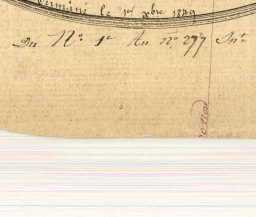 terminé le 1er 9bre 1829
Du N.º 1er Au Nº 277 Int.